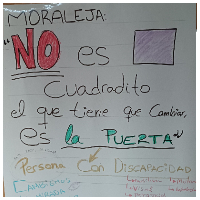 MORALEJA:
"NO es
Cuadradito
el que tiene que Cambiar,
es la PUERTA"
Persona Con DISCAPACIDAD